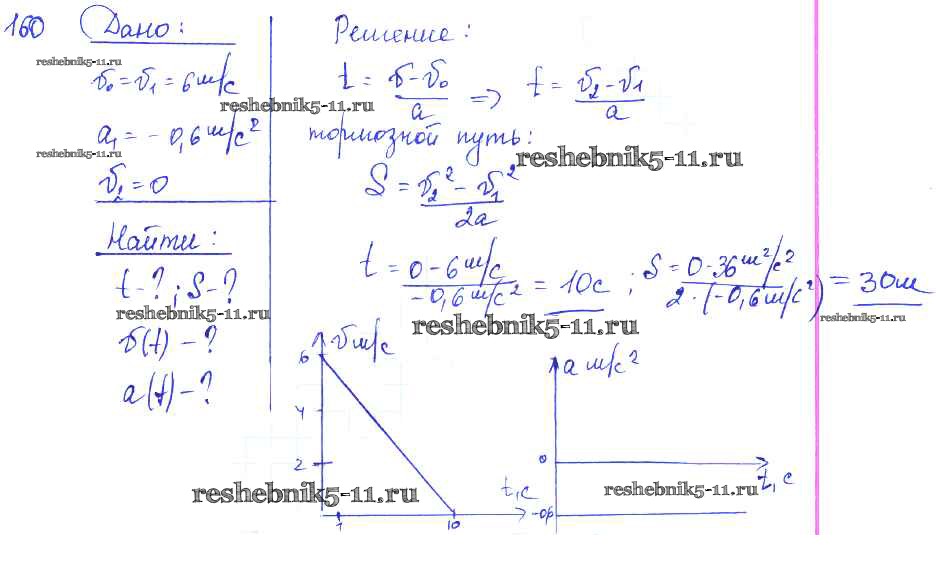 160 Дано:
reshebnik5-11.ru
v₀ = v₁ = 6 м/с
reshebnik5-11.ru
a₁ = - 0,6 м/с²
reshebnik5-11.ru
v₂ = 0
Найти:
t - ? ; S - ?
reshebnik5-11.ru
v(t) - ?
a(t) - ?
Решение:
t = (v - v₀)/a => t = (v₂ - v₁)/a
тормозной путь:
reshebnik5-11.ru
S = (v₂² - v₁²)/2a
t = (0 - 6 м/с)/(-0,6 м/с²) = 10с ; S = (0 - 36 м²/с²)/(2 · (-0,6 м/с²)) = 30м
reshebnik5-11.ru
reshebnik5-11.ru
v м/с
6
4
2
1
10
t, с
reshebnik5-11.ru
a м/с²
0
t, с
reshebnik5-11.ru